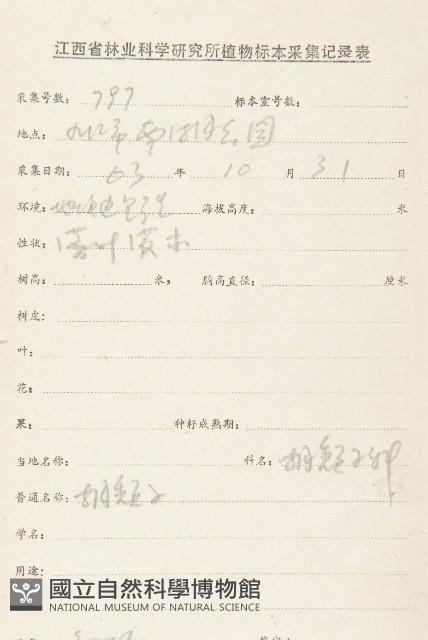 江西省林业科学研究所植物标本采集记录表
采集号数: 797 标本室号数:
地点: 九江市
采集日期: 63 年 10 月 31 日
环境: 海拔高度: 米
性状: 落叶灌木
树高: 米; 胸高直径: 厘米
树皮:
叶:
花:
果: 种籽成熟期:
当地名称: 科名: 胡颓子科
普通名称: 胡颓子
学名:
用途:
國立自然科學博物館
NATIONAL MUSEUM OF NATURAL SCIENCE